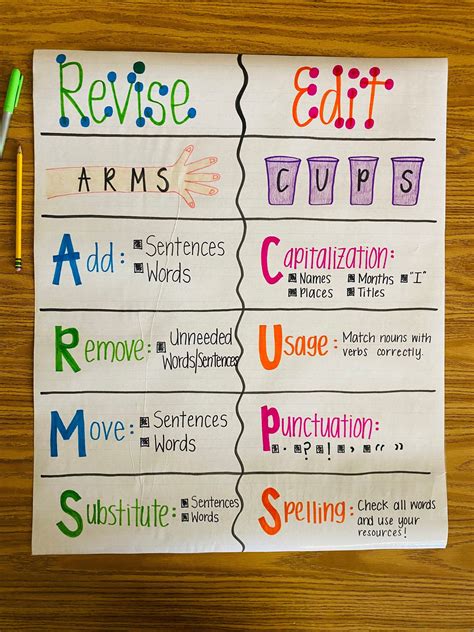 Revise
ARMS
Add: Sentences
Words
Remove: Unneeded
Words/Sentences
Move: Sentences
Words
Substitute: Sentences
Words
Edit
CUPS
Capitalization:
Names Months "I"
Places Titles
Usage: Match nouns with
verbs correctly.
Punctuation:
. ? ! , “ ”
Spelling: Check all words
and use your
resources!